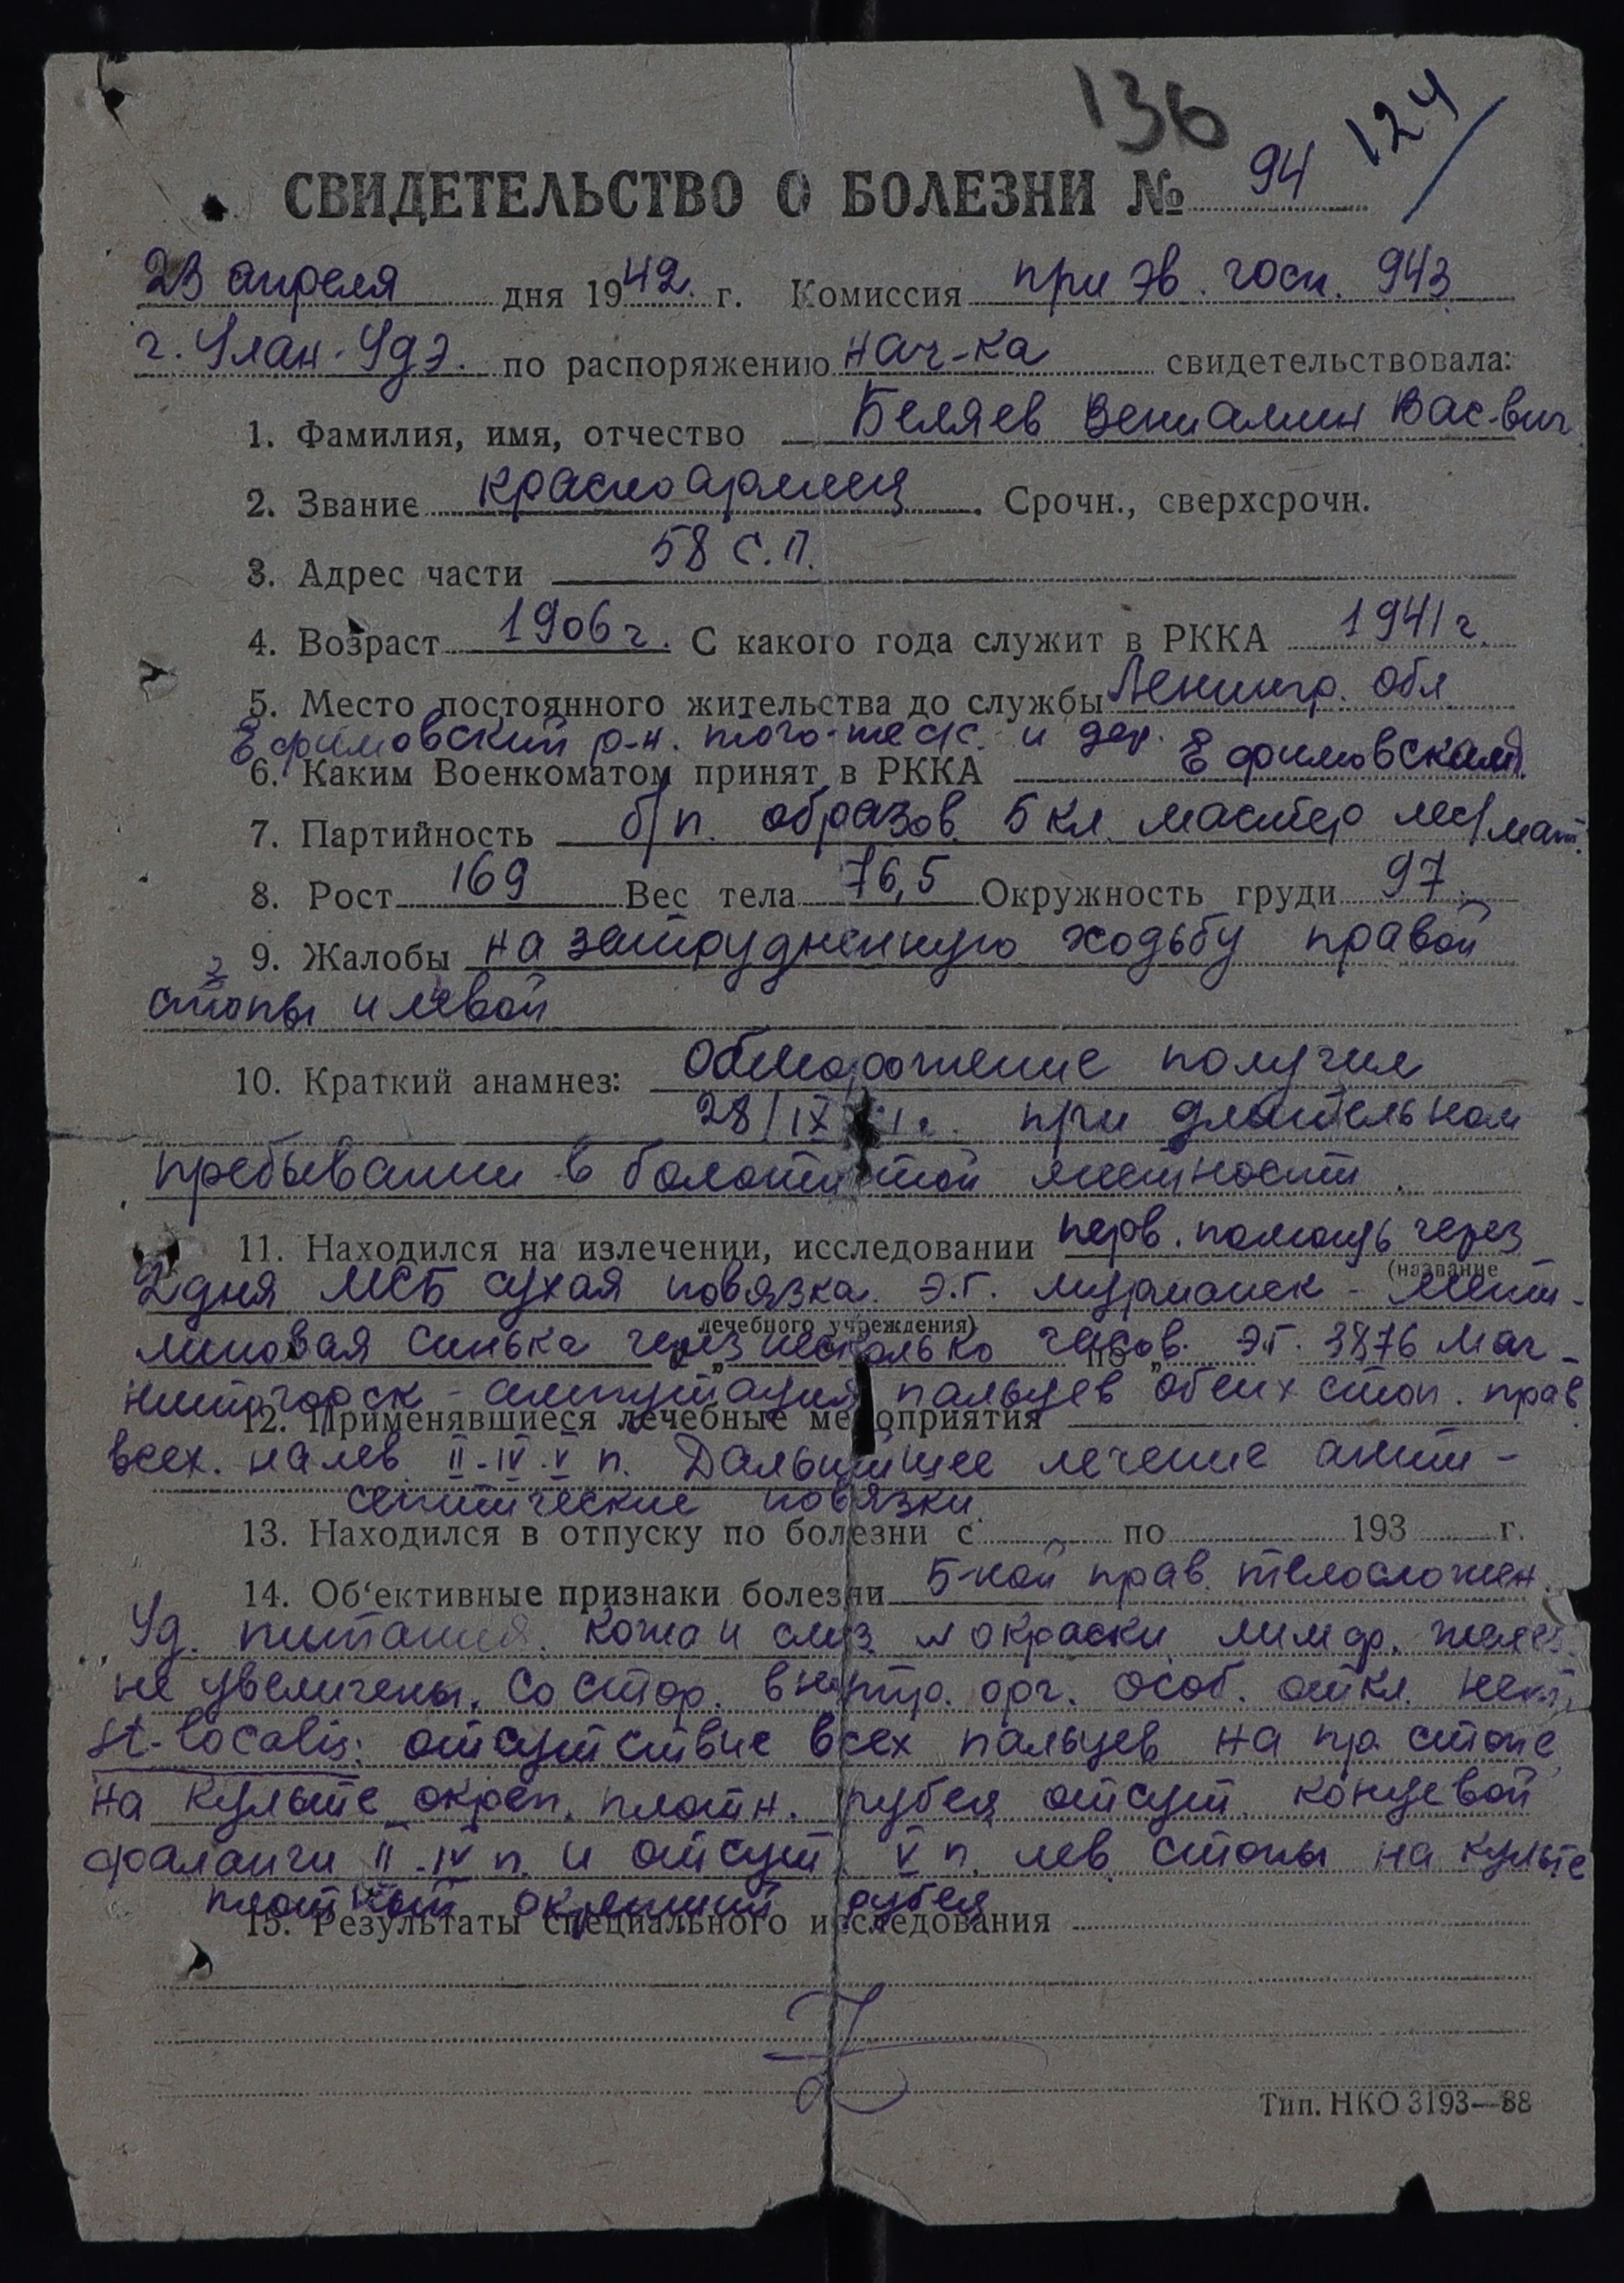 136
124
СВИДЕТЕЛЬСТВО О БОЛЕЗНИ № 94
23 апреля дня 1942 г. Комиссия при эв. госп. 943
г. Улан-Удэ. по распоряжению нач-ка свидетельствовала:
1. Фамилия, имя, отчество Беляев Вениамин Вас-вич
2. Звание красноармеец. Срочн., сверхсрочн.
3. Адрес части 58 С.П.
4. Возраст 1906 г. С какого года служит в РККА 1941 г.
5. Место постоянного жительства до службы Ленингр. обл
Ефимовский р-н. того-же с/с. и дер.
6. Каким Военкоматом принят в РККА Ефимовским
7. Партийность б/п. образов. 5 кл. мастер
8. Рост 169 Вес тела 76,5 Окружность груди 97
9. Жалобы на затрудненную ходьбу правой
стопы и левой
10. Краткий анамнез: Обморожение получил
28/IX 41 г. при длительном
пребывании в болотистой местности.
11. Находился на излечении, исследовании перв. помощь через
(название
2 дня МСБ сухая повязка. Э.Г. Мурманск - мети-
лечебного учреждения)
леновая синька через несколько часов. Э.Г. 3876 Маг-
с „ по „
нитогорск - ампутация пальцев обеих стоп. прав
12. Применявшиеся лечебные мероприятия
всех. на лев. II-IV-V п. Дальнейшее лечение анти-
септические повязки
13. Находился в отпуску по болезни с по 193 г.
14. Об‘ективные признаки болезни Б-ной прав. телосложен.
Уд. питания. Кожа и слиз. N окраски лимф. желез.
не увеличены. Со стор. внутр. орг. особ. откл. нет
St. localis: отсутствие всех пальцев на пр. стопе
на культе окреп. плотн. рубец отсут. концевой
фаланги II-IV п. и отсут. V п. лев. стопы на культе
плотный окрепший рубец
15. Результаты специального исследования
Тип. НКО 3193—38